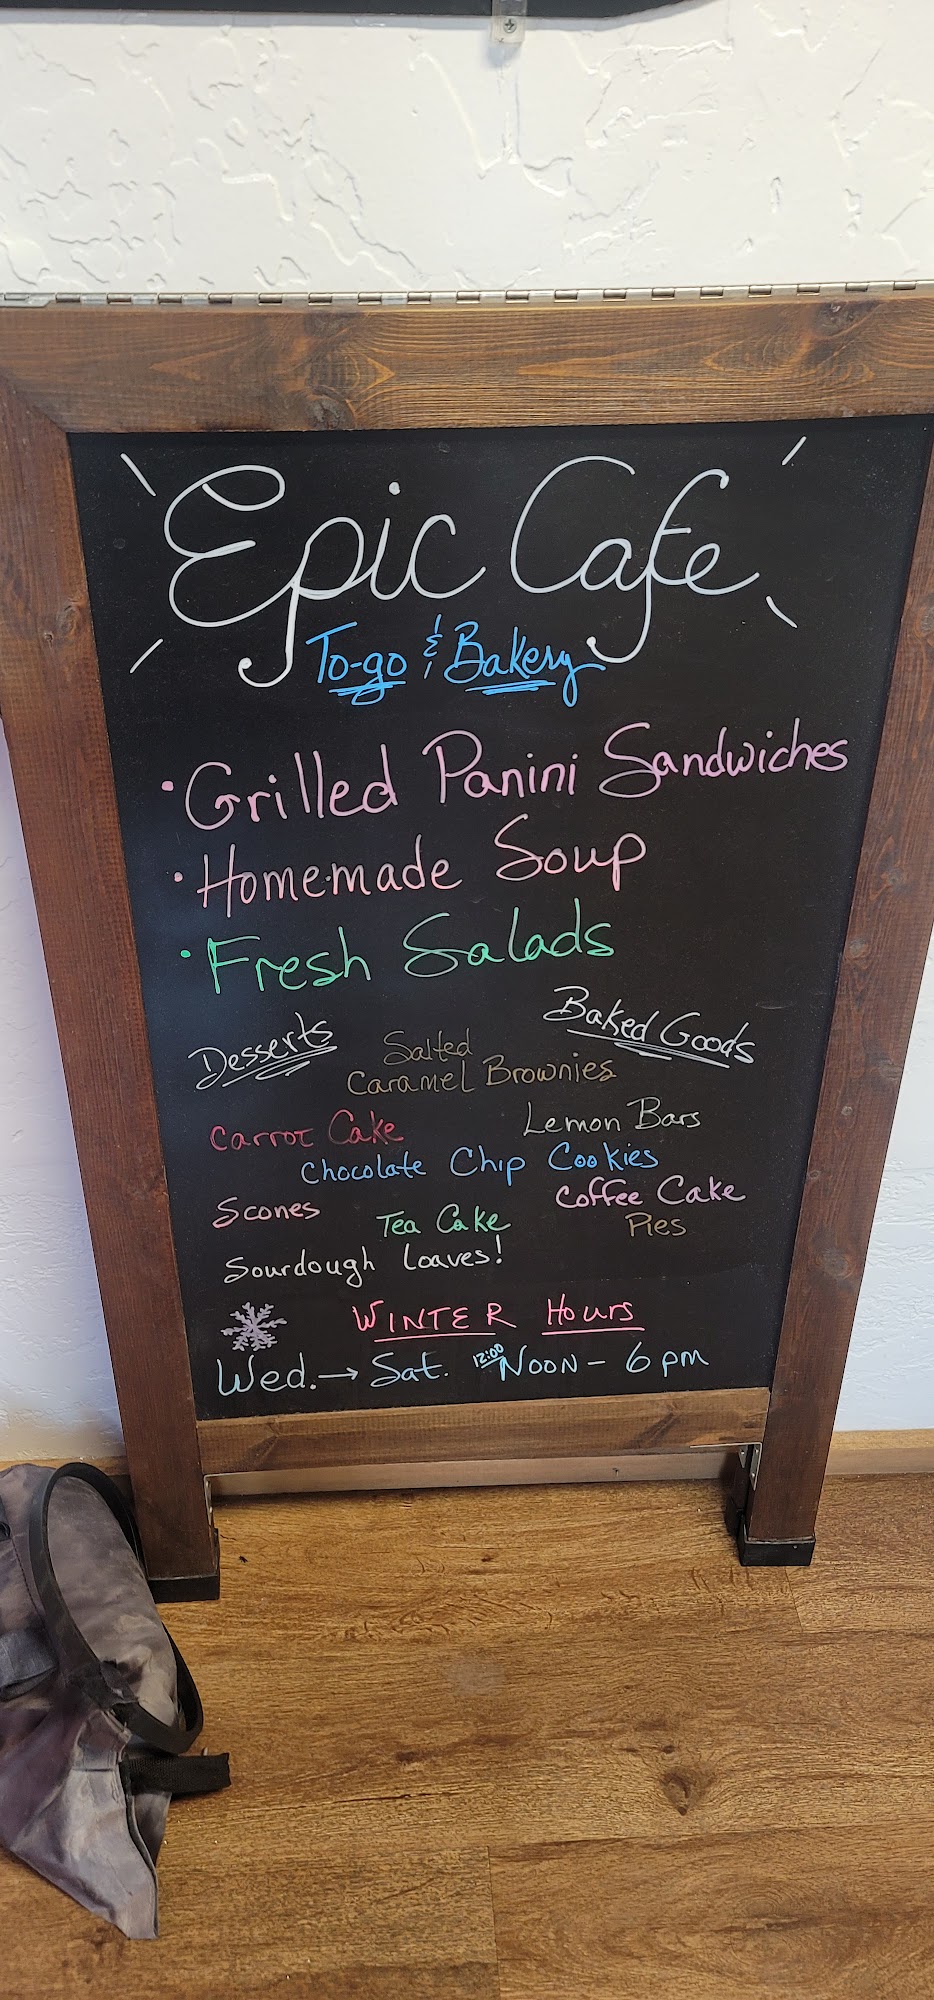 Epic Cafe
To-go & Bakery
• Grilled Panini Sandwiches
• Homemade Soup
• Fresh Salads
Desserts
Baked Goods
Salted
Caramel Brownies
Carrot Cake
Lemon Bars
Chocolate Chip Cookies
Scones
Tea Cake
Coffee Cake
Pies
Sourdough Loaves!
Winter Hours
Wed. → Sat. 12:00 Noon - 6pm